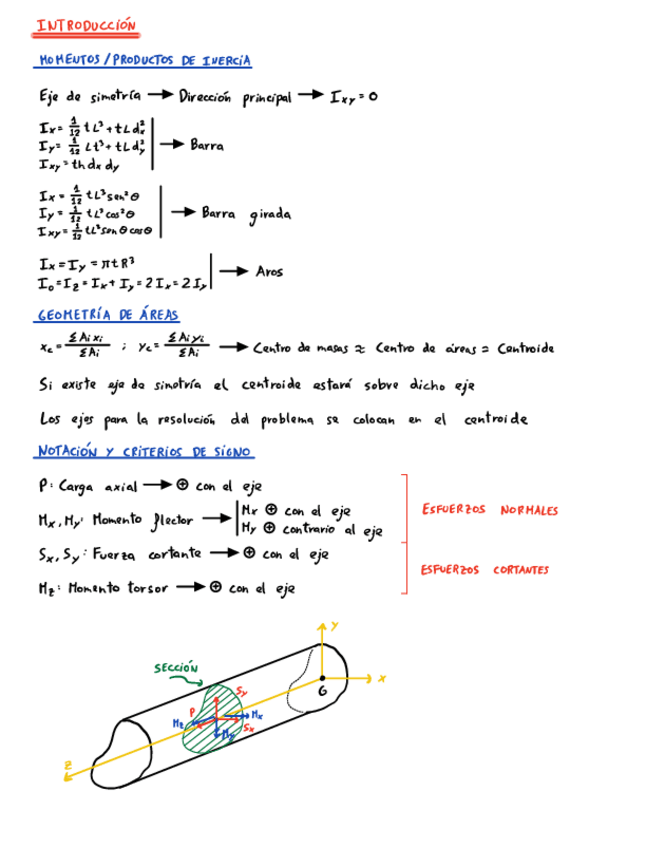 INTRODUCCIÓN
MOMENTOS/PRODUCTOS DE INERCIA
Eje de simetría → Dirección principal → Ixy = 0
Ix = 1/12 tL³ + tLdx²
Iy = 1/12 Lt³ + tLdy² → Barra
Ixy = th dx dy
Ix = 1/12 tL³ sen²θ
Iy = 1/12 tL³ cos²θ → Barra girada
Ixy = 1/12 tL³ sen θ cos θ
Ix = Iy = πtR³
I₀ = Iz = Ix + Iy = 2Ix = 2Iy → Aros
GEOMETRÍA DE ÁREAS
xc = ΣAi xi / ΣAi ; yc = ΣAi yi / ΣAi → Centro de masas ≈ Centro de áreas = Centroide
Si existe eje de simetría el centroide estará sobre dicho eje
Los ejes para la resolución del problema se colocan en el centroide
NOTACIÓN Y CRITERIOS DE SIGNO
P: Carga axial → ⊕ con el eje
Mx, My: Momento flector → Mx ⊕ con el eje
My ⊕ contrario al eje
ESFUERZOS NORMALES
Sx, Sy: Fuerza cortante → ⊕ con el eje
Mz: Momento torsor → ⊕ con el eje
ESFUERZOS CORTANTES
Y
SECCIÓN
X
G
Sy
P
Mx
Mz
Sx
My
Z